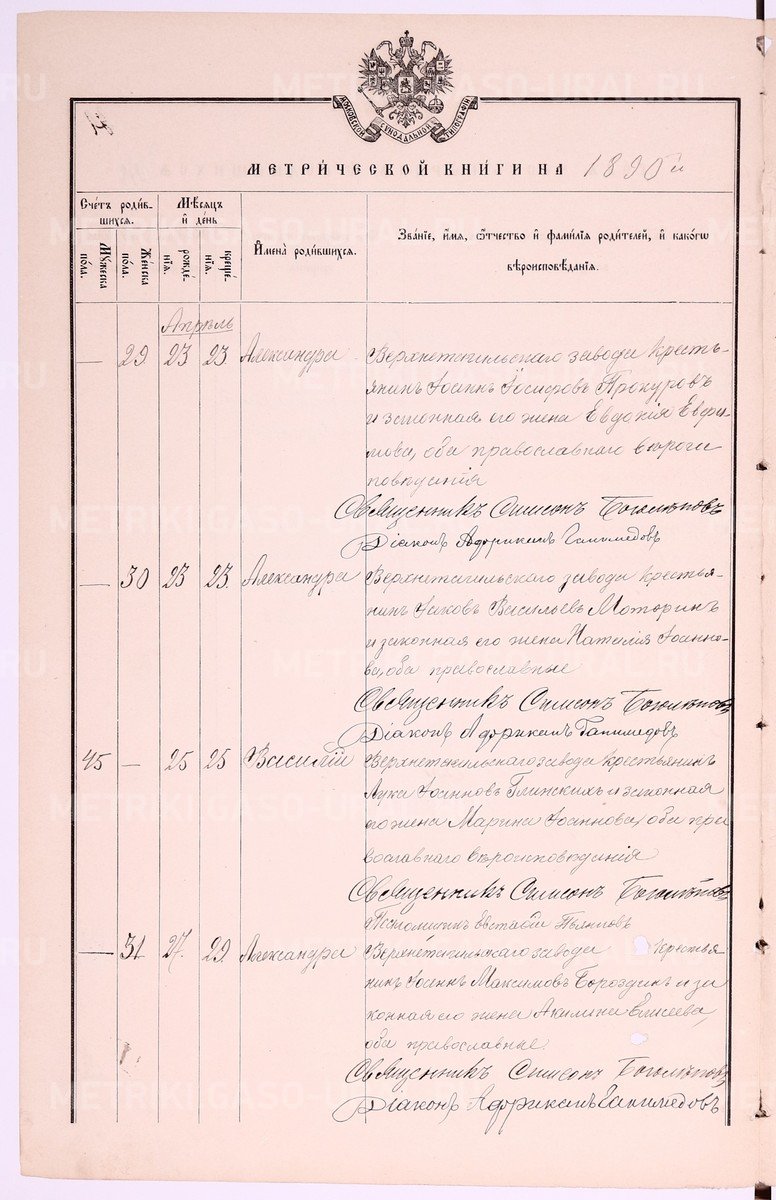 МОСКОВСКОЙ СУНОДАЛЬНОЙ ТИПОГРАФІИ
МЕТРИЧЕСКОЙ КНИГИ НА 1890 й
Счетъ родив-
шихся.
Мѣсяцъ
и день
Мужеска
пола.
Женска
пола.
рожде-
нія.
креще-
нія.
Имена родившихся.
Званіе, имя, отчество и фамилія родителей, и какогѡ
вѣроисповѣданія.
Апрѣль
— 29 23 23 Александра Верхнетагильскаго завода кресть-
янинъ Іоаннъ Іосифовъ Прокуровъ
и законная его жена Евдокія Евфи-
мова, оба православнаго вѣроис
повѣданія
Священникъ Симеонъ Боголѣповъ
Діаконъ Африканъ Ганимедовъ
— 30 23 23 Александра Верхнетагильскаго завода крестья-
нинъ Іаковъ Васильевъ Моторинъ
и законная его жена Наталія Іоанно-
ва, оба православные
Священникъ Симеонъ Боголѣповъ
Діаконъ Африканъ Ганимедовъ
45 — 25 25 Василій Верхнетагильскаго завода крестьянинъ
Лука Іоанновъ Глинскихъ и законная
его жена Марина Іоаннова, оба пра
вославнаго вѣроисповѣданія
Священникъ Симеонъ Боголѣповъ
Псаломщикъ Евстафій
— 31 27. 29 Александра Верхнетагильскаго завода крестья-
нинъ Іоаннъ Максимовъ Бороздинъ и за
конная его жена Акилина Елисеева,
оба православные
Священникъ Симеонъ Боголѣповъ
Діаконъ Африканъ Ганимедовъ
METRIKI.GASO-URAL.RU